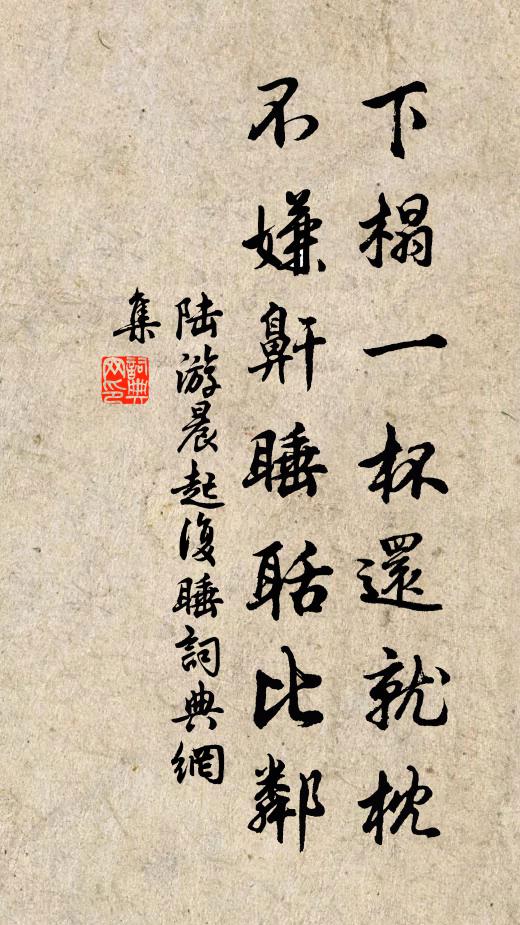 下榻一杯還就枕
不嫌鼾睡聒比鄰
陸游晨起復睡詞典網
集
詞典網印